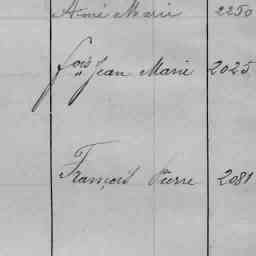 Aimé Marie 2250
fois Jean Marie 2025
François Pierre 2081